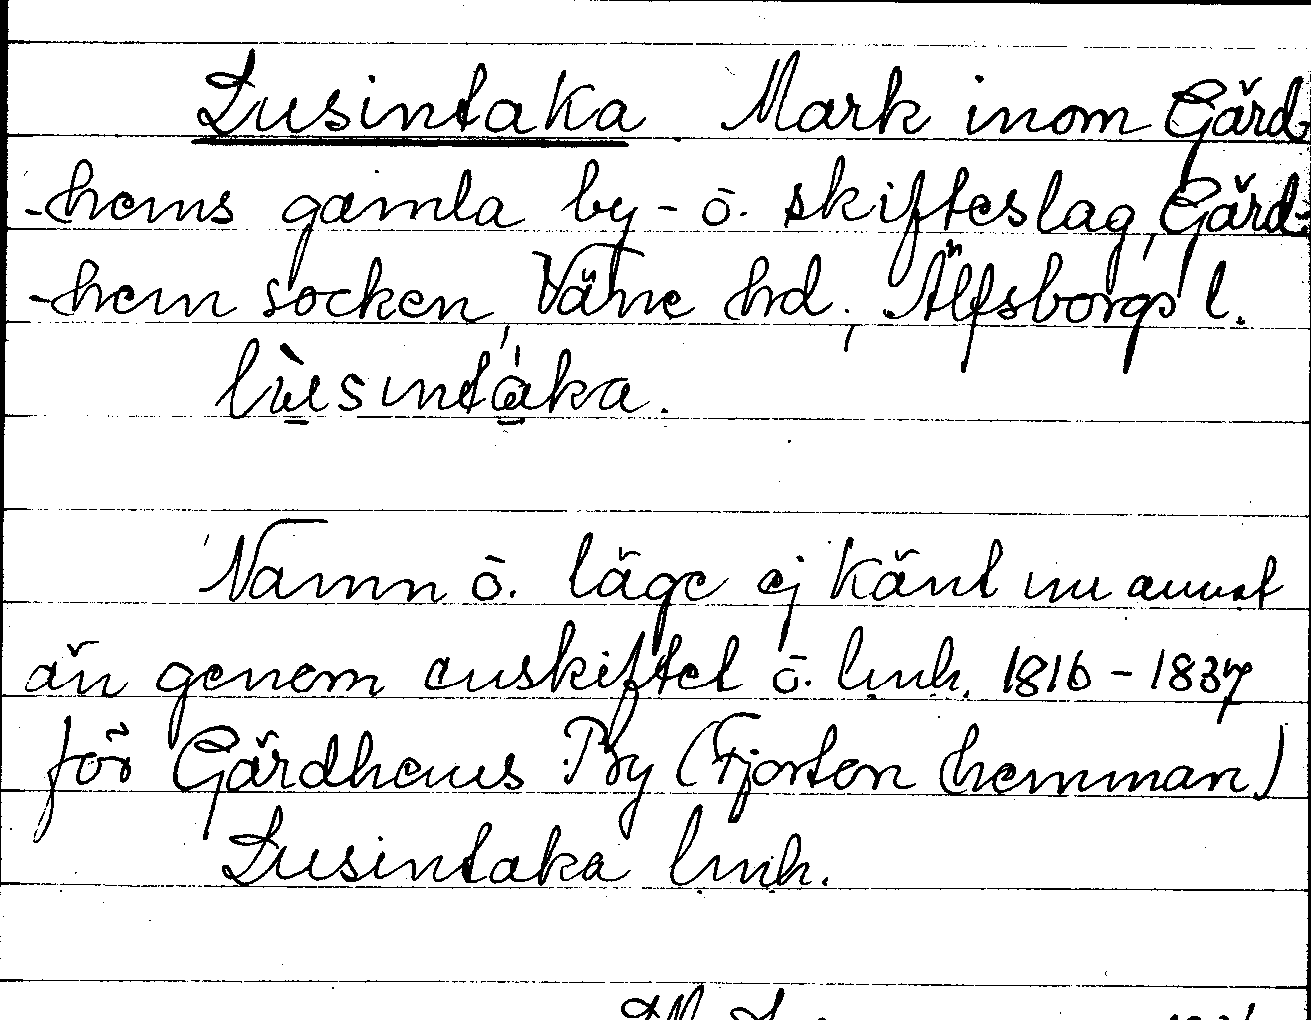 Lusintaka. Mark inom Gärd-
-hems gamla by- o. skifteslag, Gärd-
-hem socken, Väne hd., Älfsborgs l.
lùsintáka.
Namn o. läge ej känt nu annat
än genom enskiftet o. lmh. 1816-1837
för Gärdhems By (Fjorton hemman)
Lusintaka lmh.